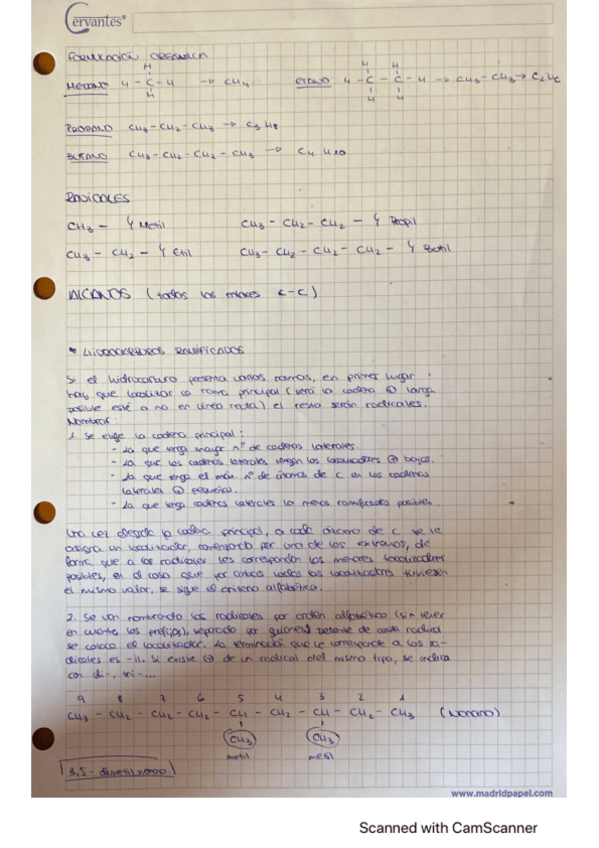 Cervantes®
FORMULACIÓN ORGÁNICA
H
METANO H - C - H → CH4
H
H H
ETANO H - C - C - H → CH3 - CH3 → C2H6
H H
PROPANO CH3 - CH2 - CH3 → C3H8
BUTANO CH3 - CH2 - CH2 - CH3 → C4H10
RADICALES
CH3 - Metil
CH3 - CH2 - CH2 - Propil
CH3 - CH2 - Etil
CH3 - CH2 - CH2 - CH2 - Butil
ALCANOS (todos los enlaces C-C)
* HIDROCARBUROS RAMIFICADOS
Si el hidrocarburo presenta varias ramas, en primer lugar
hay que localizar la rama principal (será la cadena ⊕ larga
posible esté o no en línea recta) el resto serán radicales.
Nombrar:
1. Se elige la cadena principal:
- La que tenga mayor nº de cadenas laterales.
- La que las cadenas laterales tengan los localizadores ⊕ bajos.
- La que tenga el máx nº de átomos de C en las cadenas
laterales ⊕ pequeñas.
- La que tenga cadenas laterales lo menos ramificadas posibles.
Una vez elegida la cadena principal, a cada átomo de C se le
asigna un localizador, comenzando por uno de los extremos, de
forma que a los radicales les correspondan los menores localizadores
posibles, en el caso que por ambos lados los localizadores tuviesen
el mismo valor, se sigue el criterio alfabético.
2. Se van nombrando los radicales por orden alfabético (sin tener
en cuenta los prefijos), separado por guiones, delante de cada radical
se coloca el localizador. La terminación que le corresponde a los ra-
dicales es -il. Si existe ⊕ de un radical del mismo tipo, se indica
con di-, tri-...
9 8 7 6 5 4 3 2 1
CH3 - CH2 - CH2 - CH2 - CH - CH2 - CH - CH2 - CH3 (Nonano)
CH3 CH3
metil metil
3,5 - dimetilnonano
www.madridpapel.com
Scanned with CamScanner